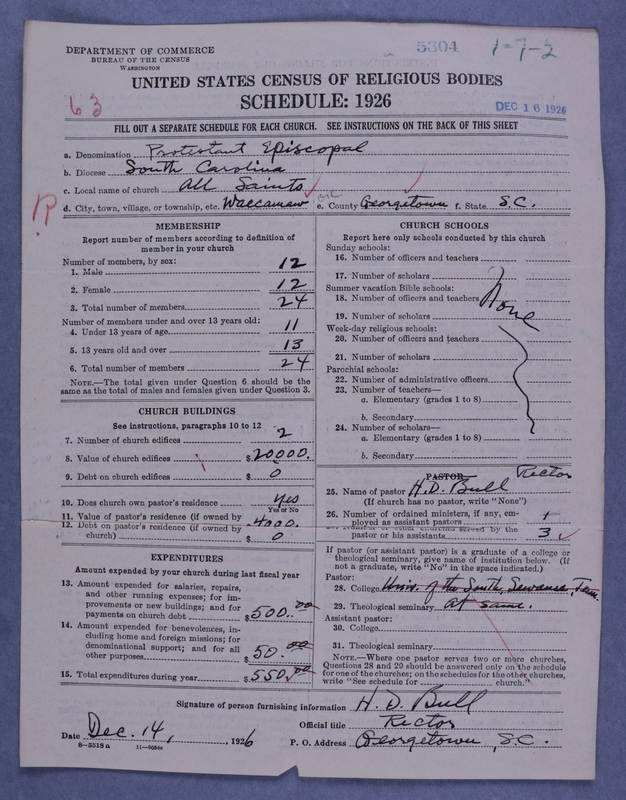 DEPARTMENT OF COMMERCE
BUREAU OF THE CENSUS
WASHINGTON
5304
1-7-2
UNITED STATES CENSUS OF RELIGIOUS BODIES
SCHEDULE: 1926
63
DEC 16 1926
FILL OUT A SEPARATE SCHEDULE FOR EACH CHURCH. SEE INSTRUCTIONS ON THE BACK OF THIS SHEET
a. Denomination Protestant Episcopal
b. Diocese South Carolina
c. Local name of church All Saints
d. City, town, village, or township, etc. Waccamaw e. County Georgetown f. State S.C.
R
MEMBERSHIP
Report number of members according to definition of
member in your church
Number of members, by sex:
1. Male 12
2. Female 12
3. Total number of members 24
Number of members under and over 13 years old:
4. Under 13 years of age 11
5. 13 years old and over 13
6. Total number of members 24
NOTE.—The total given under Question 6 should be
same as the total of males and females given under Question 3.
CHURCH BUILDINGS
See instructions, paragraphs 10 to 12
7. Number of church edifices 2
8. Value of church edifices $20000.
9. Debt on church edifices $0
10. Does church own pastor's residence Yes
Yes or No
11. Value of pastor's residence (if owned by
4000.
12. Debt on pastor's residence (if owned by
church) $0
EXPENDITURES
Amount expended by your church during last fiscal year
13. Amount expended for salaries, repairs,
and other running expenses; for im-
provements or new buildings; and for
payments on church debt $500.00
14. Amount expended for benevolences, in-
cluding home and foreign missions; for
denominational support; and for all
other purposes $50.00
15. Total expenditures during year $550.00
CHURCH SCHOOLS
Report here only schools conducted by this church
Sunday schools:
16. Number of officers and teachers
17. Number of scholars
Summer vacation Bible schools:
18. Number of officers and teachers None
19. Number of scholars
Week-day religious schools:
20. Number of officers and teachers
21. Number of scholars
Parochial schools:
22. Number of administrative officers
23. Number of teachers—
a. Elementary (grades 1 to 8)
b. Secondary
24. Number of scholars—
a. Elementary (grades 1 to 8)
b. Secondary
PASTOR Rector
25. Name of pastor H.D. Bull
(If church has no pastor, write "None")
26. Number of ordained ministers, if any, em-
ployed as assistant pastors 1
served by the
pastor or his assistants 3
If pastor (or assistant pastor) is a graduate of a college or
theological seminary, give name of institution below. (If
not a graduate, write "No" in the space indicated.)
Pastor:
28. College Univ. of the South, Sewanee, Tenn.
29. Theological seminary at same.
Assistant pastor:
30. College
31. Theological seminary
NOTE.—Where one pastor serves two or more churches,
Questions 28 and 29 should be answered only on the schedule
for one of the churches; on the schedules for the other churches,
write "See schedule for church."
Signature of person furnishing information H. D. Bull
Official title Rector
Date Dec. 14, 1926 P. O. Address Georgetown, S.C.
8-5518a 11-9054